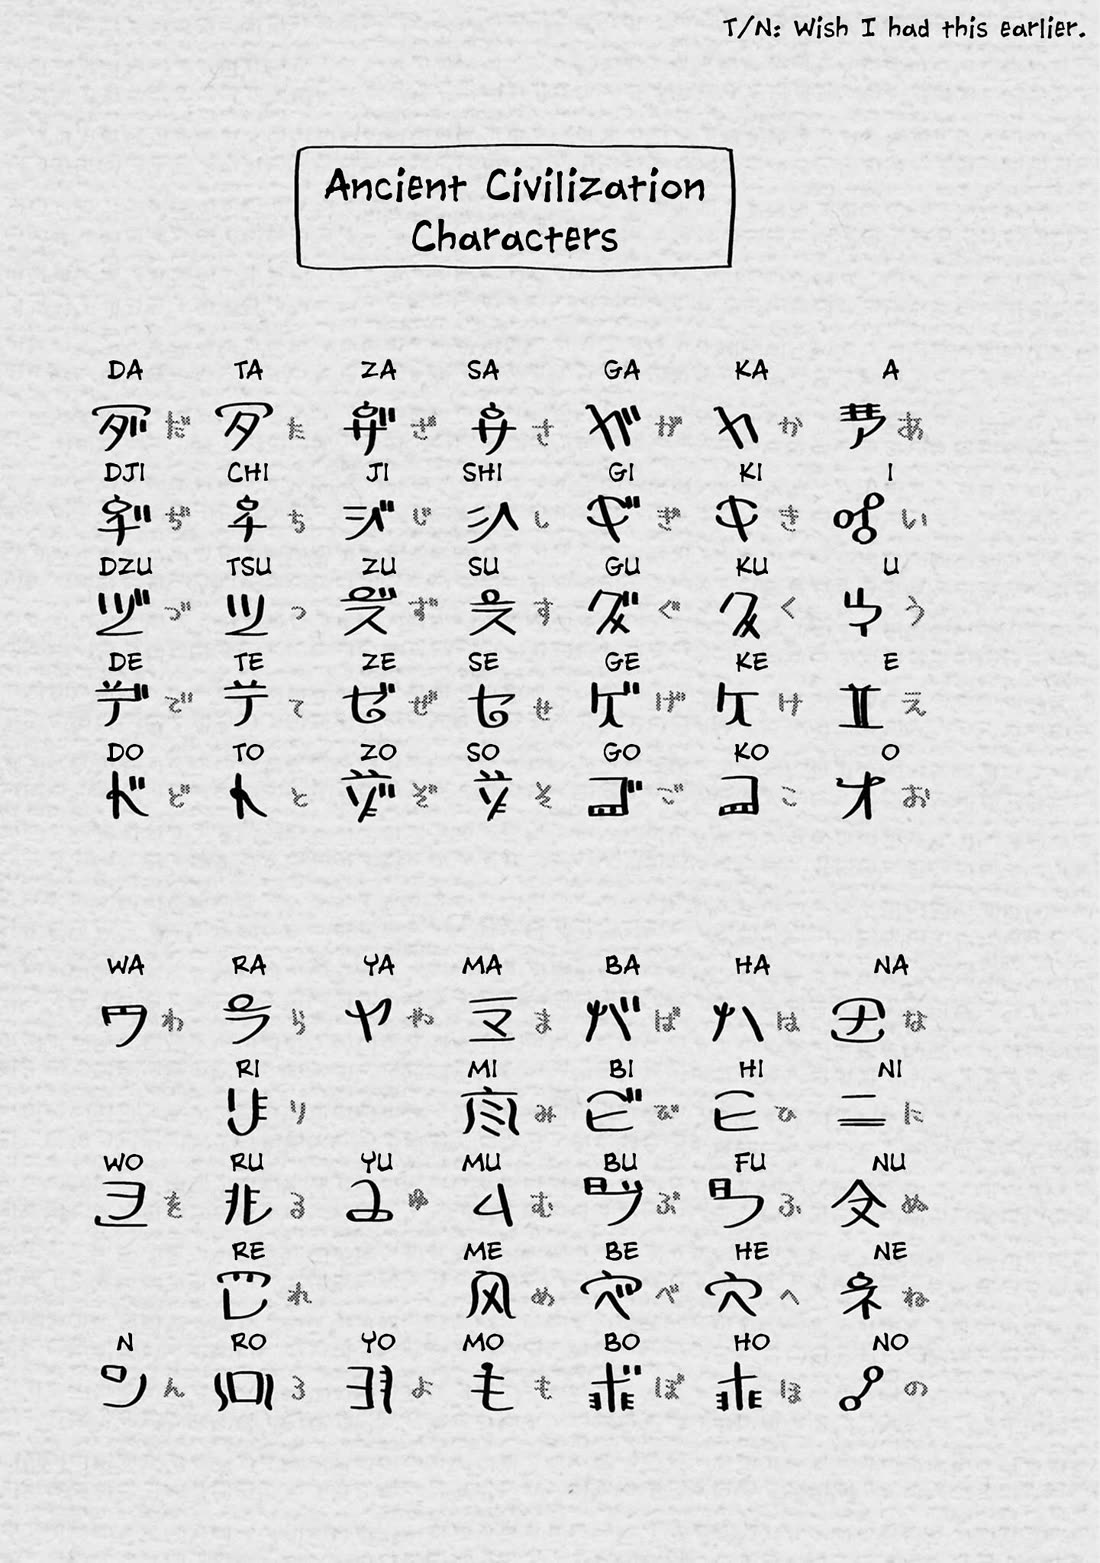 T/N: Wish I had this earlier.
Ancient Civilization
Characters
DA TA ZA SA GA KA A
だ た ざ さ が か あ
DJI CHI JI SHI GI KI I
ぢ ち じ し ぎ き い
DZU TSU ZU SU GU KU U
づ つ ず す ぐ く う
DE TE ZE SE GE KE E
で て ぜ せ げ け え
DO TO ZO SO GO KO O
ど と ぞ そ ご こ お
WA RA YA MA BA HA NA
わ ら や ま ば は な
RI MI BI HI NI
り み び ひ に
WO RU YU MU BU FU NU
を る ゆ む ぶ ふ ぬ
RE ME BE HE NE
れ め べ へ ね
N RO YO MO BO HO NO
ん ろ よ も ぼ ほ の